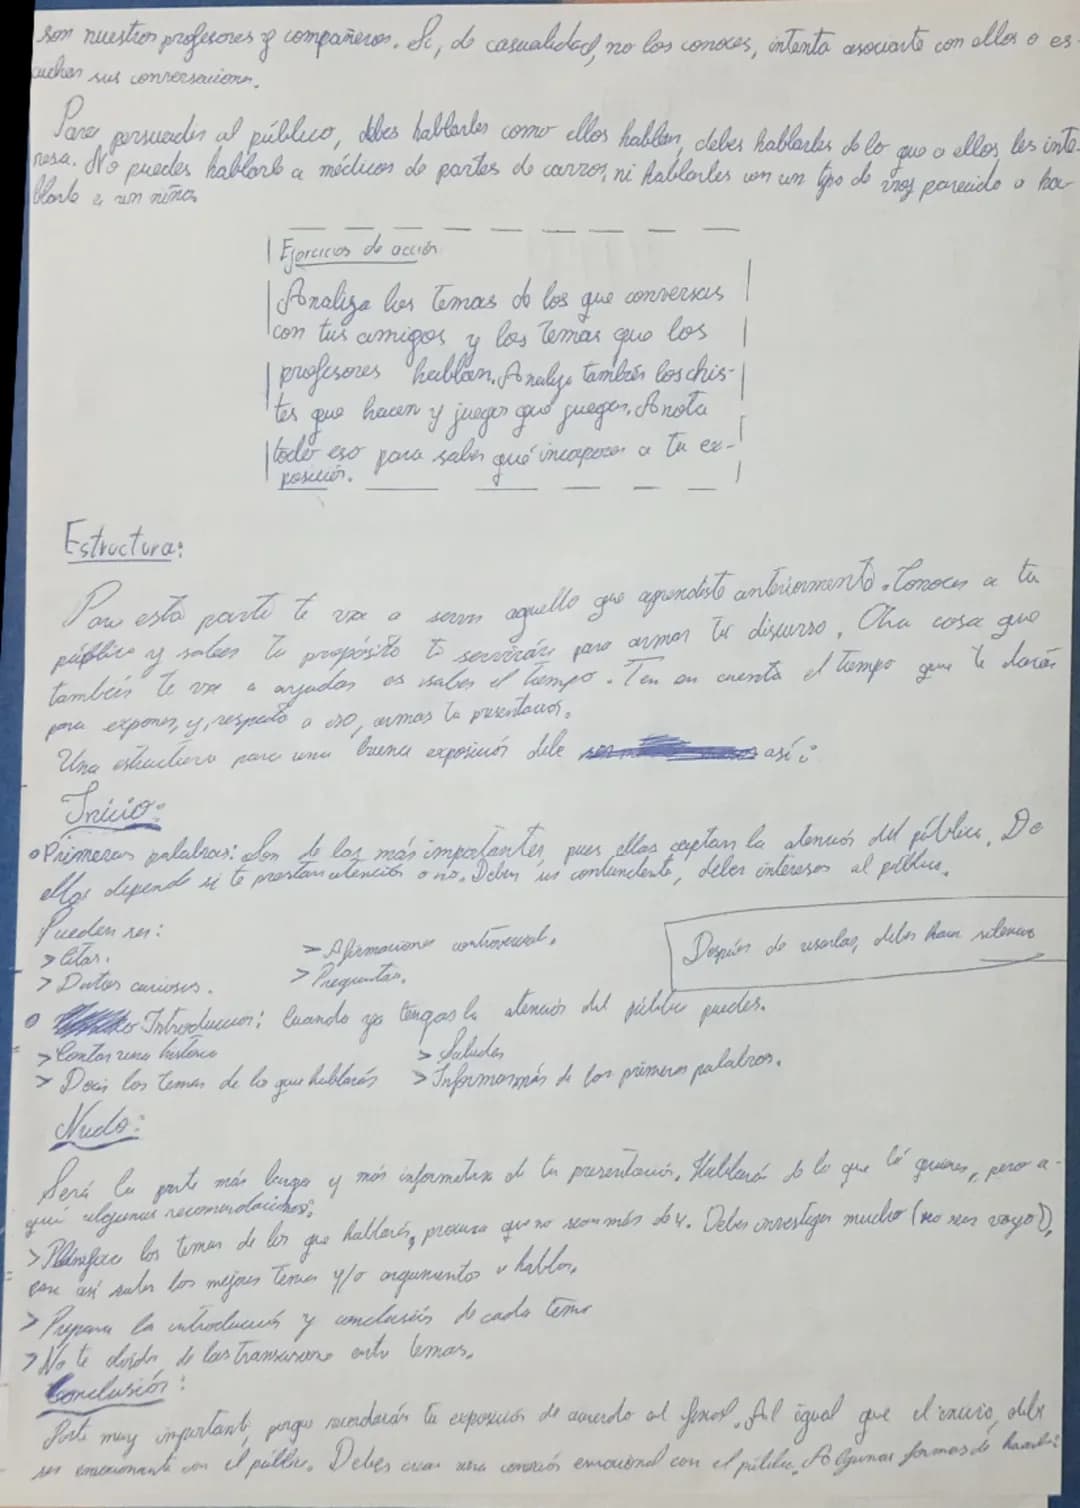 son nuestros profesores y compañeros. Si, de casualidad, no los conoces, intenta asociarte con ellos o es-
cuchar sus conversaciones.
Para persuadir al público, debes hablarles como ellos hablan, debes hablarles de lo que a ellos les inte-
resa. No puedes hablarle a médicos de partes de carros, ni hablarles con un tipo de voz parecido a ha-
blarle a un niño.
Ejercicios de acción
Analiza los temas de los que conversas
con tus amigos y los temas que los
profesores hablan. Analiza también los chis-
tes que hacen y juegos que juegan. Anota
todo eso para saber qué incorporar a tu ex-
posición.
Estructura:
Para esta parte te va a servir aquello que aprendiste anteriormente. Conocer a tu
público y saber tu propósito te servirán para armar tu discurso. Otra cosa que
también te va a ayudar es saber el tiempo. Ten en cuenta el tiempo que te darán
para exponer, y, respecto a eso, armas la presentación.
Una estructura para una buena exposición debe ser así:
Inicio:
Primeras palabras: Son de las más importantes, pues ellas captan la atención del público. De
ellas depende si te prestan atención o no. Deben ser contundente, deben interesar al público.
Pueden ser:
> Citas. > Afirmaciones controversial.
> Datos curiosos. > Preguntas.
Después de usarlas, debes hacer silencio
Introducción: Cuando ya tengas la atención del público puedes.
> Contar una historia > Saludar
> Decir los temas de lo que hablarás > Informar más de las primeras palabras.
Nudo:
Será la parte más larga y más informativa de tu presentación. Hablarás de lo que tú quieras, pero a-
quí algunas recomendaciones:
> Planifica los temas de los que hablarás, procura que no sean más de 4. Debes investigar mucho (no seas vago),
para así saber los mejores temas y/o argumentos a hablar.
> Prepara la introducción y conclusión de cada tema
> No te olvides de las transiciones entre temas.
Conclusión:
Parte muy importante, porque recordarán tu exposición de acuerdo al final. Al igual que el inicio, debe
ser emocionante con el público. Debes crear una conexión emocional con el público. Algunas formas de hacerlo: